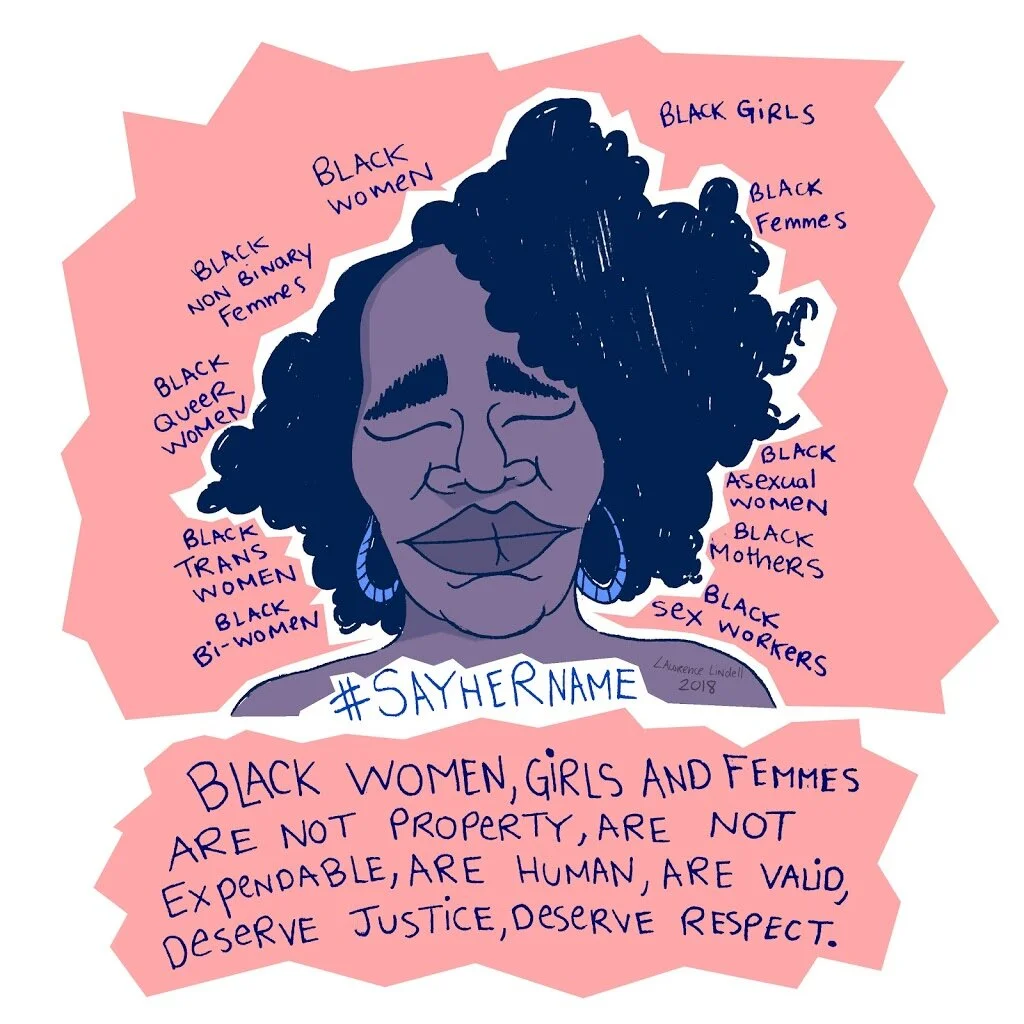 BLACK
WOMEN
BLACK GIRLS
BLACK
Femmes
BLACK
NON BINARY
Femmes
BLACK
QUEER
WOMEN
BLACK
TRANS
WOMEN
BLACK
Bi-WOMEN
BLACK
Asexual
WOMEN
BLACK
MOTHERS
BLACK
SEX WORKERS
#SAYHERNAME
LAWRENCE LINDELL
2018
BLACK WOMEN, GIRLS AND FEMMES
ARE NOT PROPERTY, ARE NOT
EXPENDABLE, ARE HUMAN, ARE VALID,
DESERVE JUSTICE, DESERVE RESPECT.